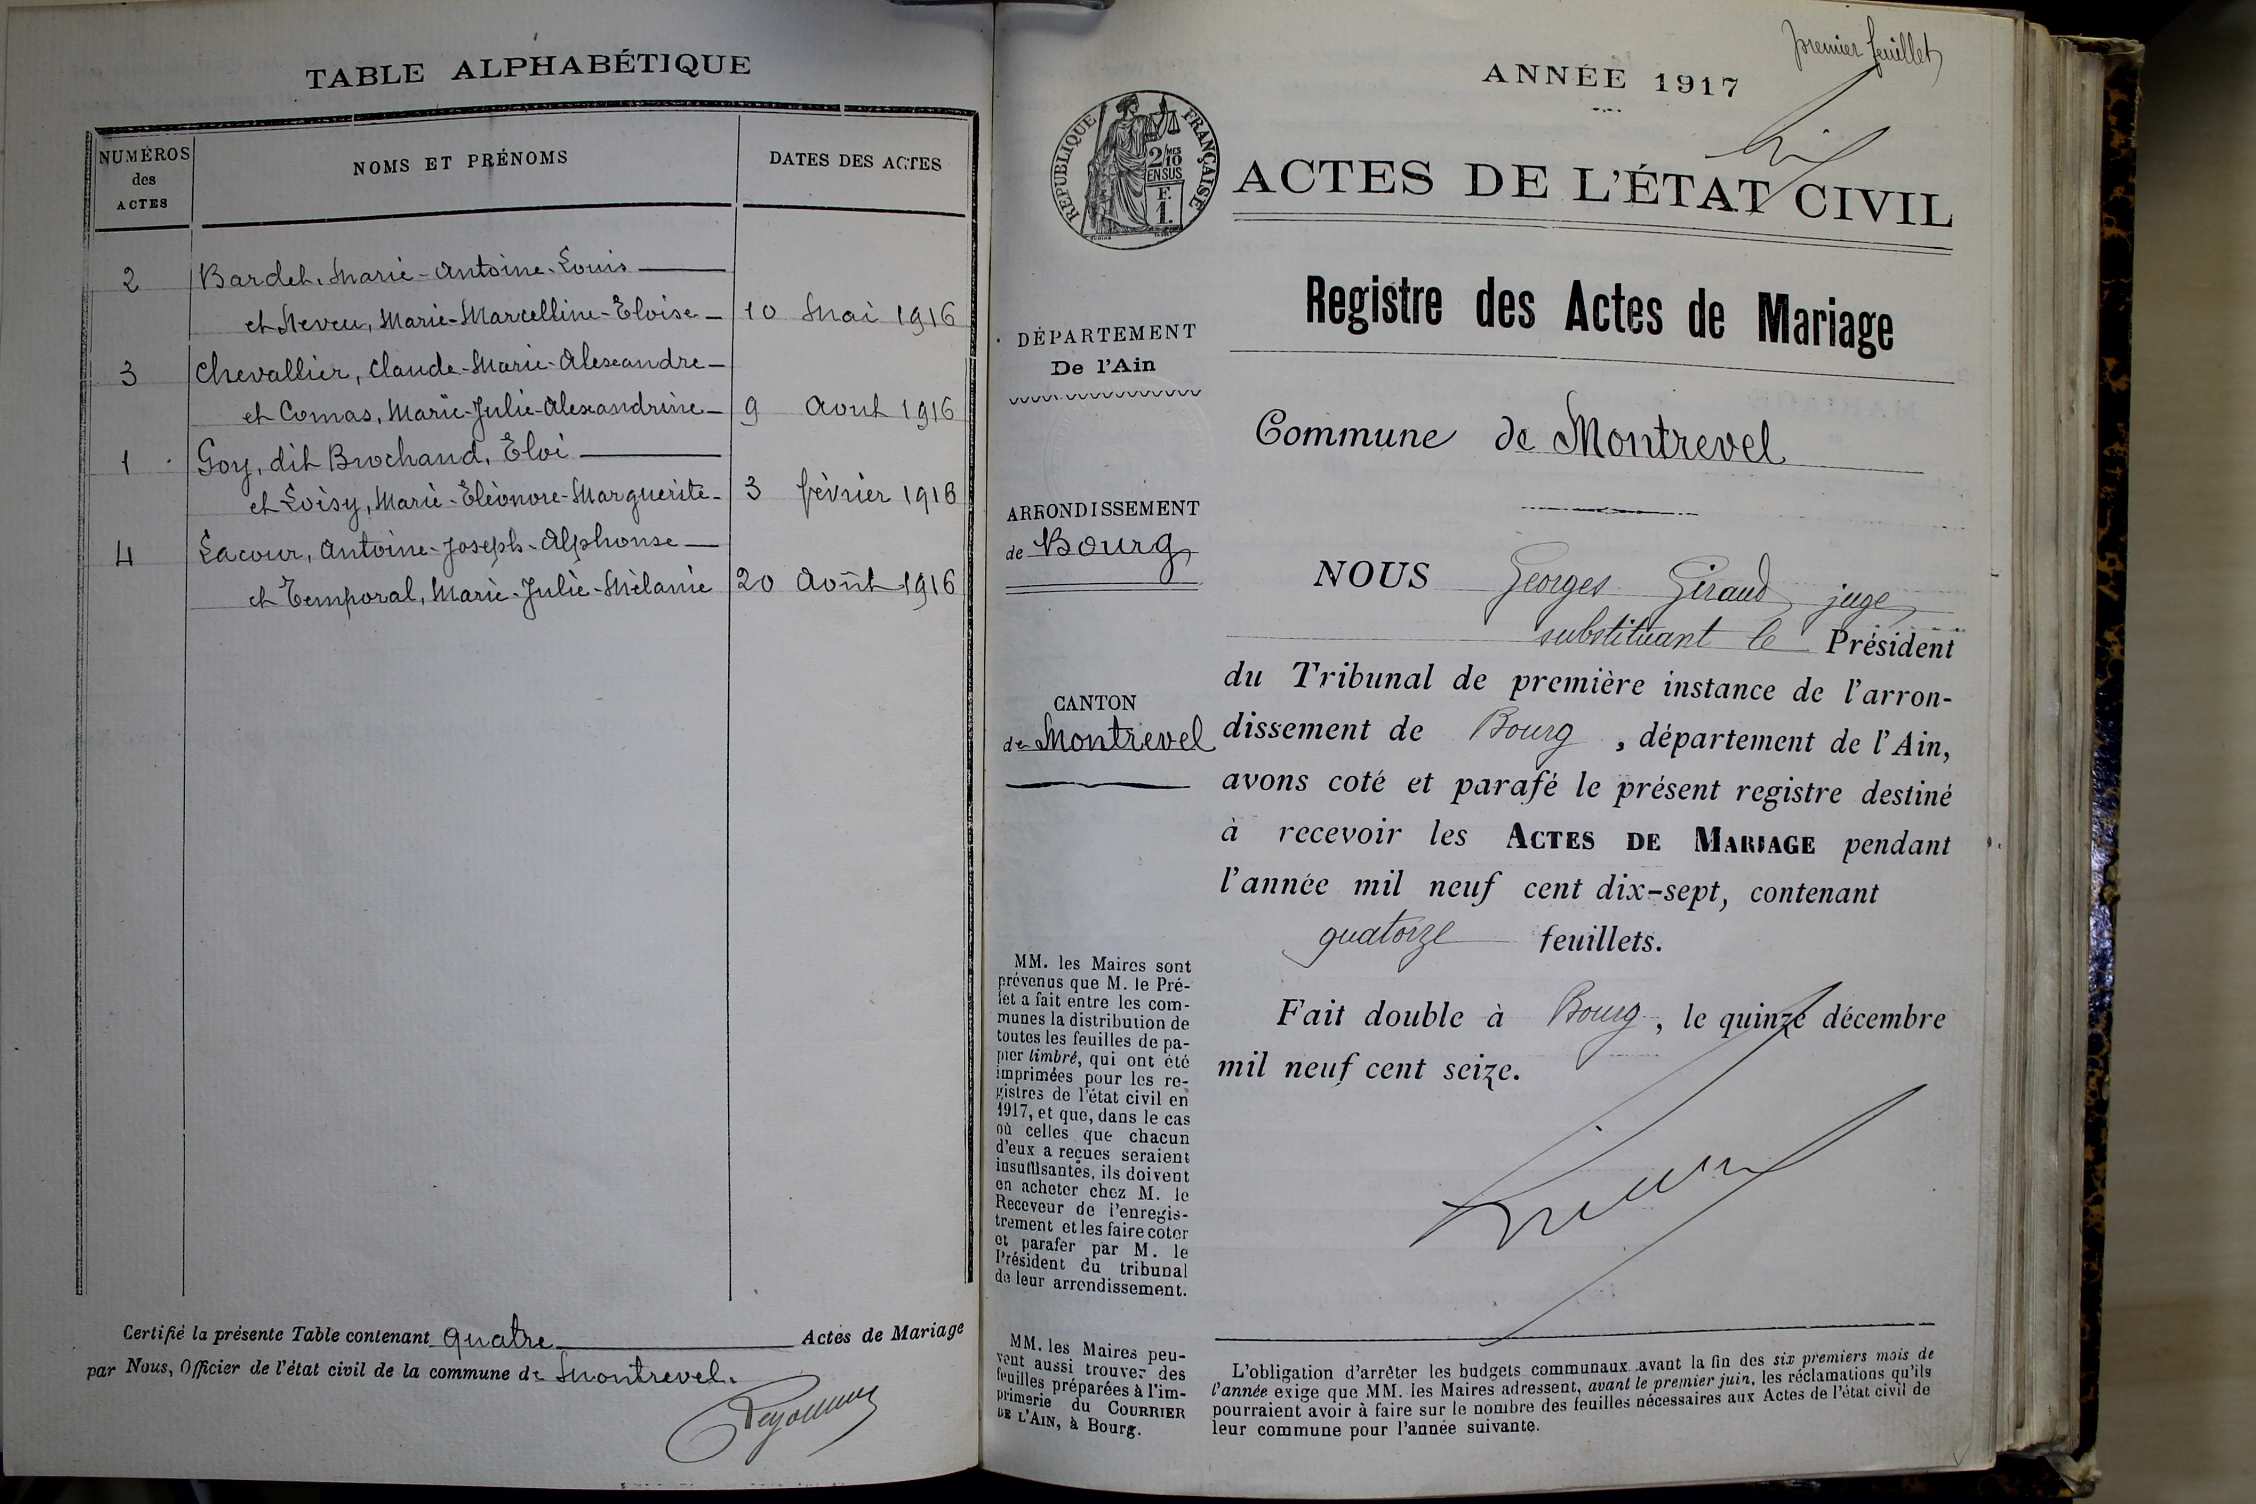 TABLE ALPHABÉTIQUE
NUMÉROS
des
ACTES
NOMS ET PRÉNOMS
DATES DES ACTES
2 Bardet, Marie-Antoine-Louis
et Neveu, Marie-Marcelline-Eloise 10 Mai 1916
3 Chevallier, Claude-Marie-Alexandre
et Comas, Marie-Julie-Alexandrine 9 Aout 1916
1 Goy, dit Brochand, Eloi
et Loisy, Marie-Eléonore-Marguerite 3 février 1916
4 Lacour, Antoine-Joseph-Alphonse
et Temporal, Marie-Julie-Mélanie 20 Août 1916
Certifié la présente Table contenant quatre Actes de Mariage
par Nous, Officier de l'état civil de la commune de Montrevel.
premier feuillet
ANNÉE 1917
RÉPUBLIQUE FRANÇAISE
2/10MES
EN SUS
F.
1.
ACTES DE L'ÉTAT CIVIL
Registre des Actes de Mariage
DÉPARTEMENT
De l'Ain
Commune de Montrevel
ARRONDISSEMENT
de Bourg
CANTON
de Montrevel
NOUS Georges Giraud juge
substituant le Président
du Tribunal de première instance de l'arron-
dissement de Bourg, département de l'Ain,
avons coté et parafé le présent registre destiné
à recevoir les ACTES DE MARIAGE pendant
l'année mil neuf cent dix-sept, contenant
quatorze feuillets.
Fait double à Bourg, le quinze décembre
mil neuf cent seize.
MM. les Maires sont
prévenus que M. le Pré-
fet a fait entre les com-
munes la distribution de
toutes les feuilles de pa-
pier timbré, qui ont été
imprimées pour les re-
gistres de l'état civil en
1917, et que, dans le cas
où celles que chacun
d'eux a reçues seraient
insuffisantes, ils doivent
en acheter chez M. le
Receveur de l'enregis-
trement et les faire coter
et parafer par M. le
Président du tribunal
de leur arrondissement.
MM. les Maires peu-
vent aussi trouver des
feuilles préparées à l'im-
primerie du COURRIER
DE L'AIN, à Bourg.
L'obligation d'arrêter les budgets communaux avant la fin des six premiers mois de
l'année exige que MM. les Maires adressent, avant le premier juin, les réclamations qu'ils
pourraient avoir à faire sur le nombre des feuilles nécessaires aux Actes de l'état civil de
leur commune pour l'année suivante.